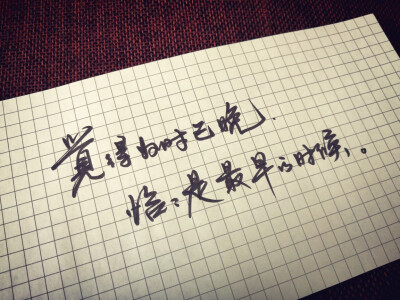 觉得为时已晚.
恰々是最早的时候。